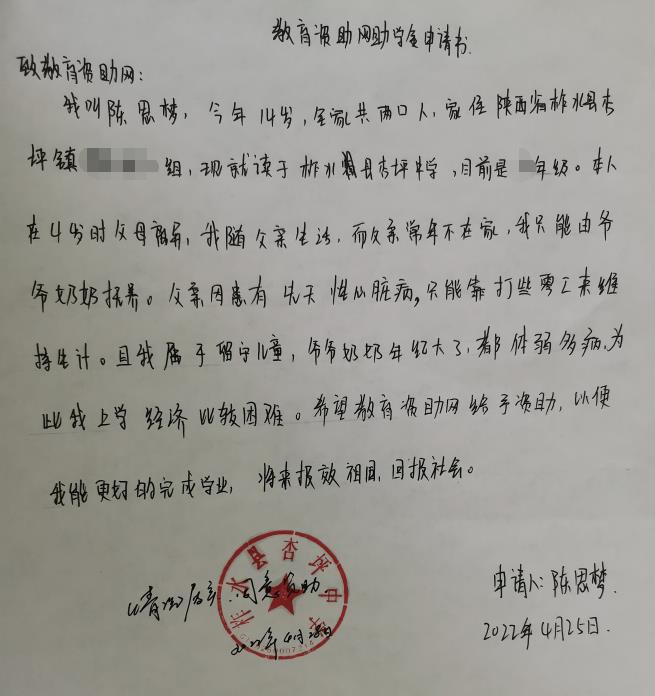 教育资助网助学金申请书
致教育资助网：
我叫陈思梦，今年14岁，全家共两口人，家住陕西省柞水县杏
坪镇 组，现就读于柞水县杏坪中学，目前是 年级。本人
在4岁时父母离异，我随父亲生活，而父亲常年不在家，我只能由爷
爷奶奶抚养。父亲因患有先天性心脏病，只能靠打些零工来维
持生计。且我属于留守儿童，爷爷奶奶年纪大了，都体弱多病，为
此我上学经济比较困难。希望教育资助网给予资助，以便
我能更好的完成学业，将来报效祖国，回报社会。
柞水县杏坪中学
情况属实 同意资助
2022年4月28日
申请人：陈思梦
2022年4月25日